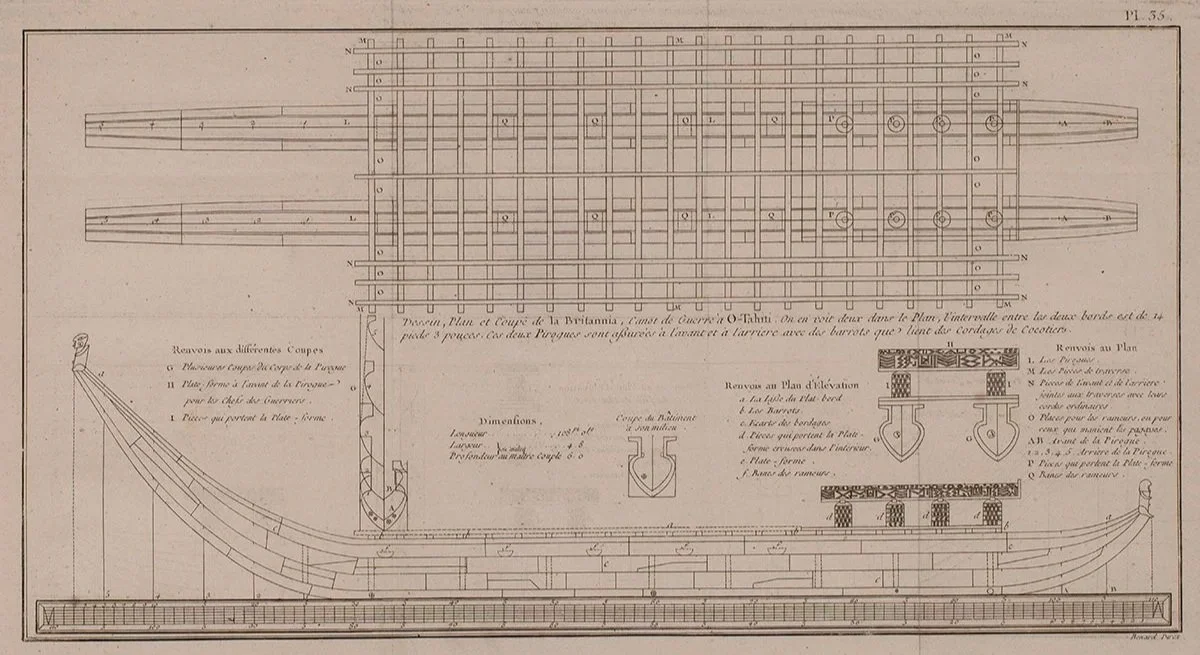 Pl. 35.
Dessin, Plan et Coupe de la Britannia, Canot de Guerre à O-Tahiti. On en voit deux dans le Plan, l'intervalle entre les deux bords est de 14
pieds 3 pouces. Ces deux Pirogues sont assurées à l'avant et à l'arriere avec des barrots que lient des Cordages de Cocotiers.
Renvois aux différentes Coupes
G Plusieures Coupes du Corps de la Pirogue
H Plate-forme à l'avant de la Pirogue
pour les Chefs des Guerriers.
I Pièces qui portent la Plate-forme.
Dimensions.
Longueur 108
Largeur 4. 8
au milieu
Profondeur au maître Couple 6. 0
Coupe du Bâtiment
à son milieu
Renvois au Plan d'Élévation
a. La Lisse du Plat-bord
b. Les Barrots.
c. Ecarts des bordages
d. Pièces qui portent la Plate-
forme croisees dans l'interieur.
e. Plate-forme.
f. Bancs des rameurs.
Renvois au Plan
L Les Pirogues.
M Les Pièces de traverse.
N Pièces de l'avant et de l'arriere
jointes aux traverses avec leurs
cordes ordinaires.
O Places pour les rameurs, ou pour
ceux qui manient les pagayes.
AB Avant de la Pirogue.
1. 2. 3. 4. 5. Arriere de la Pirogue.
P Pieces qui portent la Plate-forme
Q Bancs des rameurs.
Benard Direx